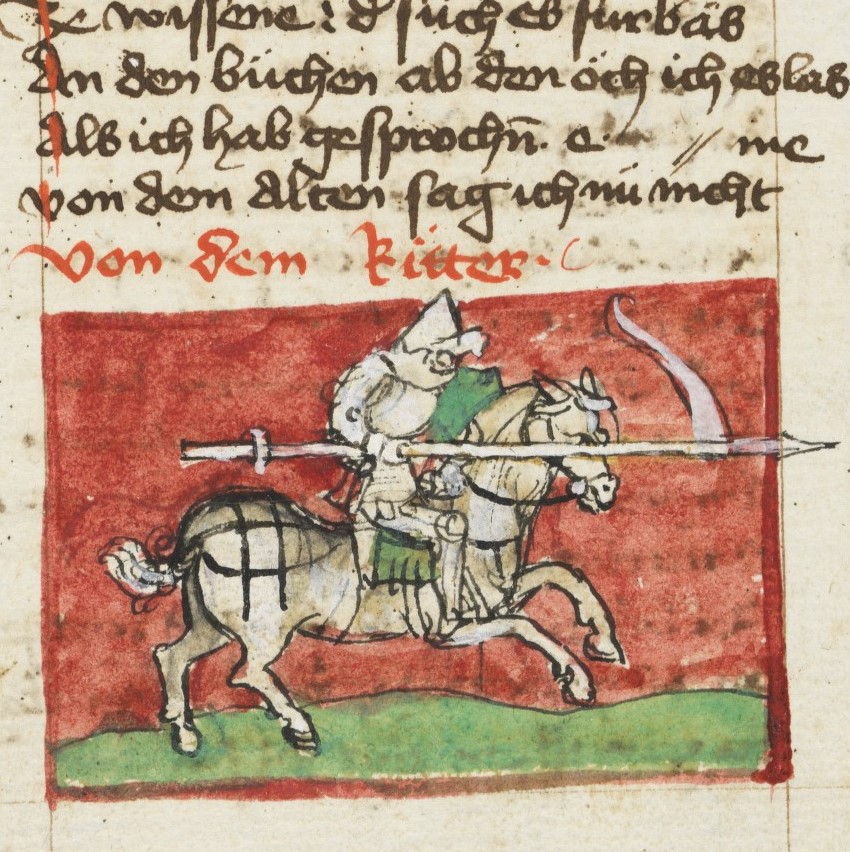 wissene : d such es furbas
An den büchen ab den öch ich es las
Als ich hab gesprochn̄ . e . // me
von dem Alten sag ich nü nicht
Von dem Ritter .